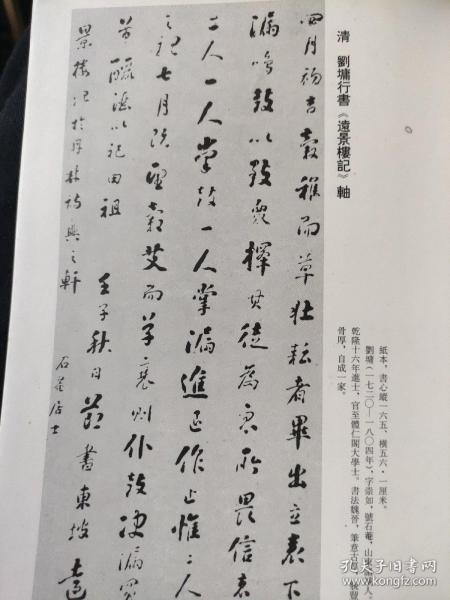 清 劉墉行書《遠景樓記》軸
紙本，書心縱一六五、橫五六·一厘米。
劉墉（一七二〇—一八〇四年），字崇如，號石菴，山東人。
乾隆十六年進士，官至體仁閣大學士。書法魏晉，筆意古豐
骨厚，自成一家。
四月初吉穀稚而草壯耘者畢出立表下
漏鳴鼓以致衆擇其徒為衆所畏信者
二人一人掌鼓一人掌漏進退作止惟二人
之聽七月既望穀艾而草衰則仆鼓決漏買
以祀田祖 壬子秋日節書東坡遠
景樓記於詩興之軒
石菴居士
孔夫子旧书网